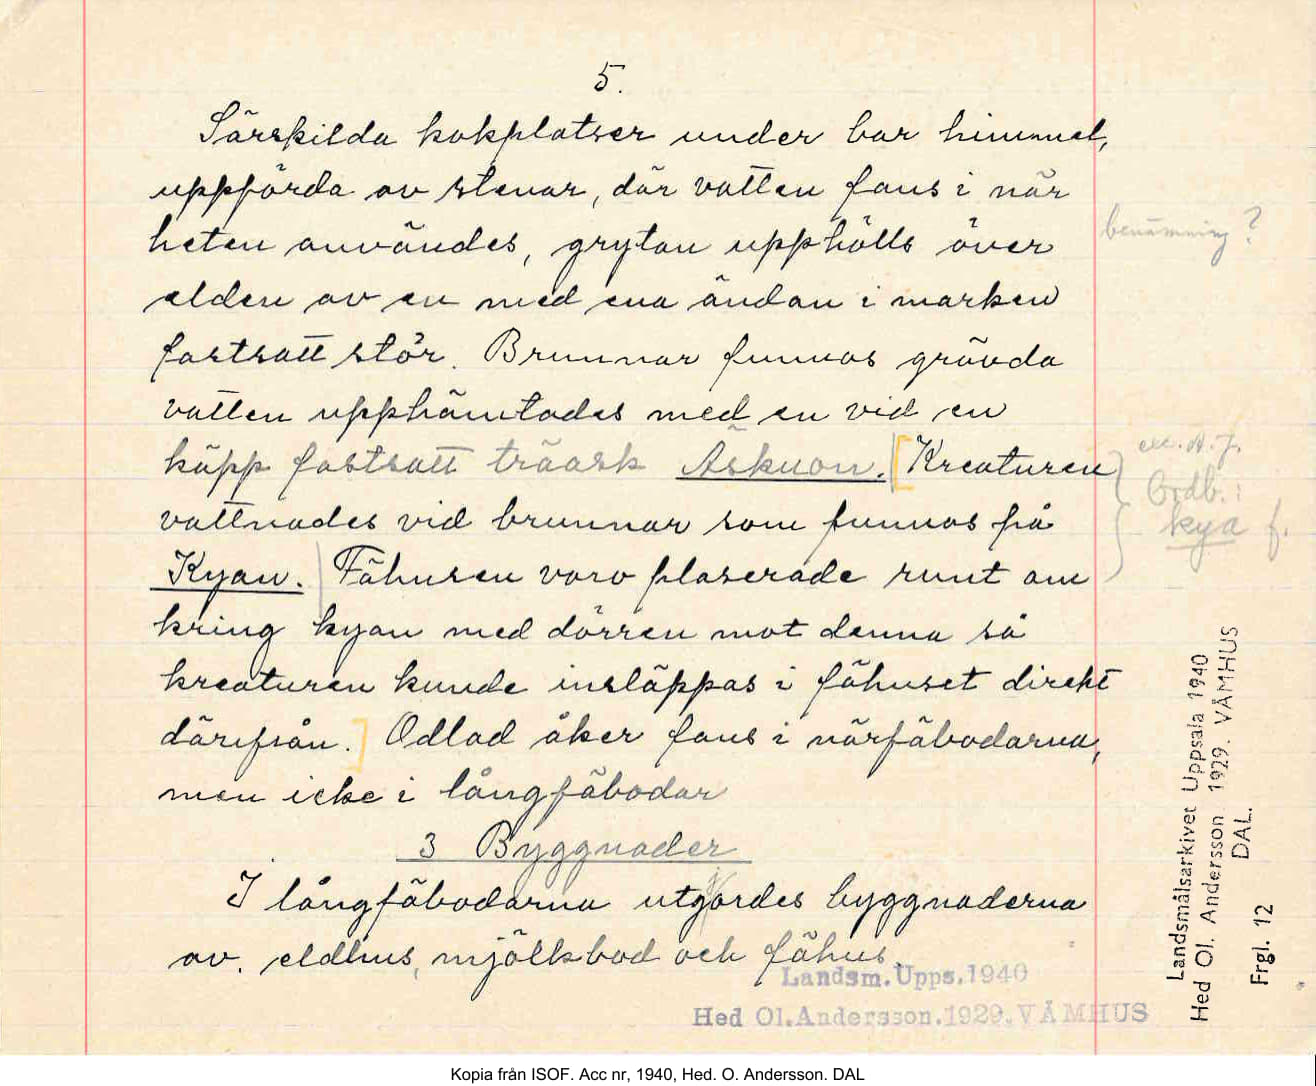 5.
Särskilda kokplatser under bar himmel,
uppförda av stenar, där vatten fans i när
heten användes, grytan upphölls över
benämning ?
elden av en med ena ändan i marken
fastsatt stör. Brunnar funnos grävda
vatten upphämtades med en vid en
käpp fastsatt träask Äskuon. [Kreaturen
exc. A. J.
Ordb.:
kya f.
vattnades vid brunnar som funnos på
Kyan. Fähusen voro plaserade runt om
kring kyan med dörren mot denna så
kreaturen kunde insläppas i fähuset direkt
därifrån.] Odlad åker fans i närfäbodarna,
men icke i långfäbodar
3 Byggnader
I långfäbodarna utgjordes byggnaderna
av. eldhus, mjölkbod och fähus.
Landsm.Upps.1940
Hed Ol.Andersson.1929.VÅMHUS
Landsmålsarkivet Uppsala 1940
Hed Ol. Andersson 1929. VÅMHUS
DAL.
Frgl. 12
Kopia från ISOF. Acc nr, 1940, Hed. O. Andersson. DAL